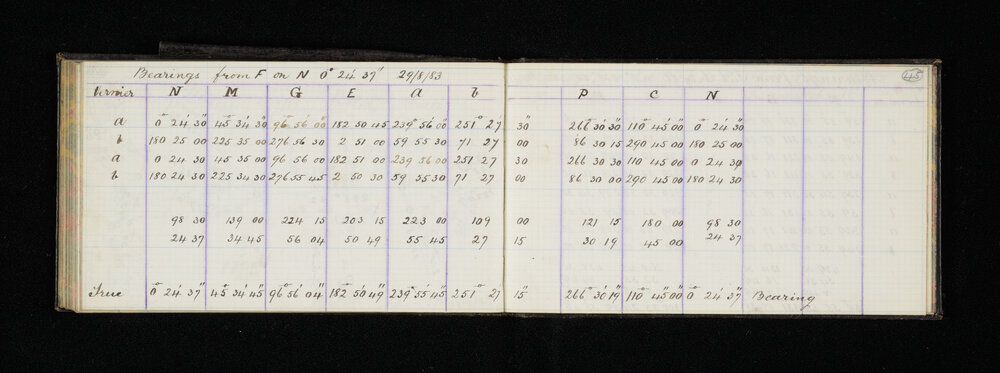 Bearings from F on N 0° 24' 37" 29/8/83
45
Vernier N M G E a b P C N
a 0° 24' 30" 45° 34' 30" 96° 56' 00" 182 50 45 239° 56' 00" 251° 27 30" 266° 30' 30" 110° 45' 00" 0° 24' 30"
b 180 25 00 225 35 00 276 56 30 2 51 00 59 55 30 71 27 00 86 30 15 290 45 00 180 25 00
a 0 24 30 45 35 00 96 56 00 182 51 00 239 56 00 251 27 30 266 30 30 110 45 00 0 24 30
b 180 24 30 225 34 30 276 55 45 2 50 30 59 55 30 71 27 00 86 30 00 290 45 00 180 24 30
98 30 139 00 224 15 203 15 223 00 109 00 121 15 180 00 98 30
24 37 34 45 56 04 50 49 55 45 27 15 30 19 45 00 24 37
True 0° 24' 37" 45° 34' 45" 96° 56' 04" 182° 50' 49" 239° 55' 45" 251° 27 15" 266° 30' 19" 110° 45' 00" 0° 24' 37" Bearing